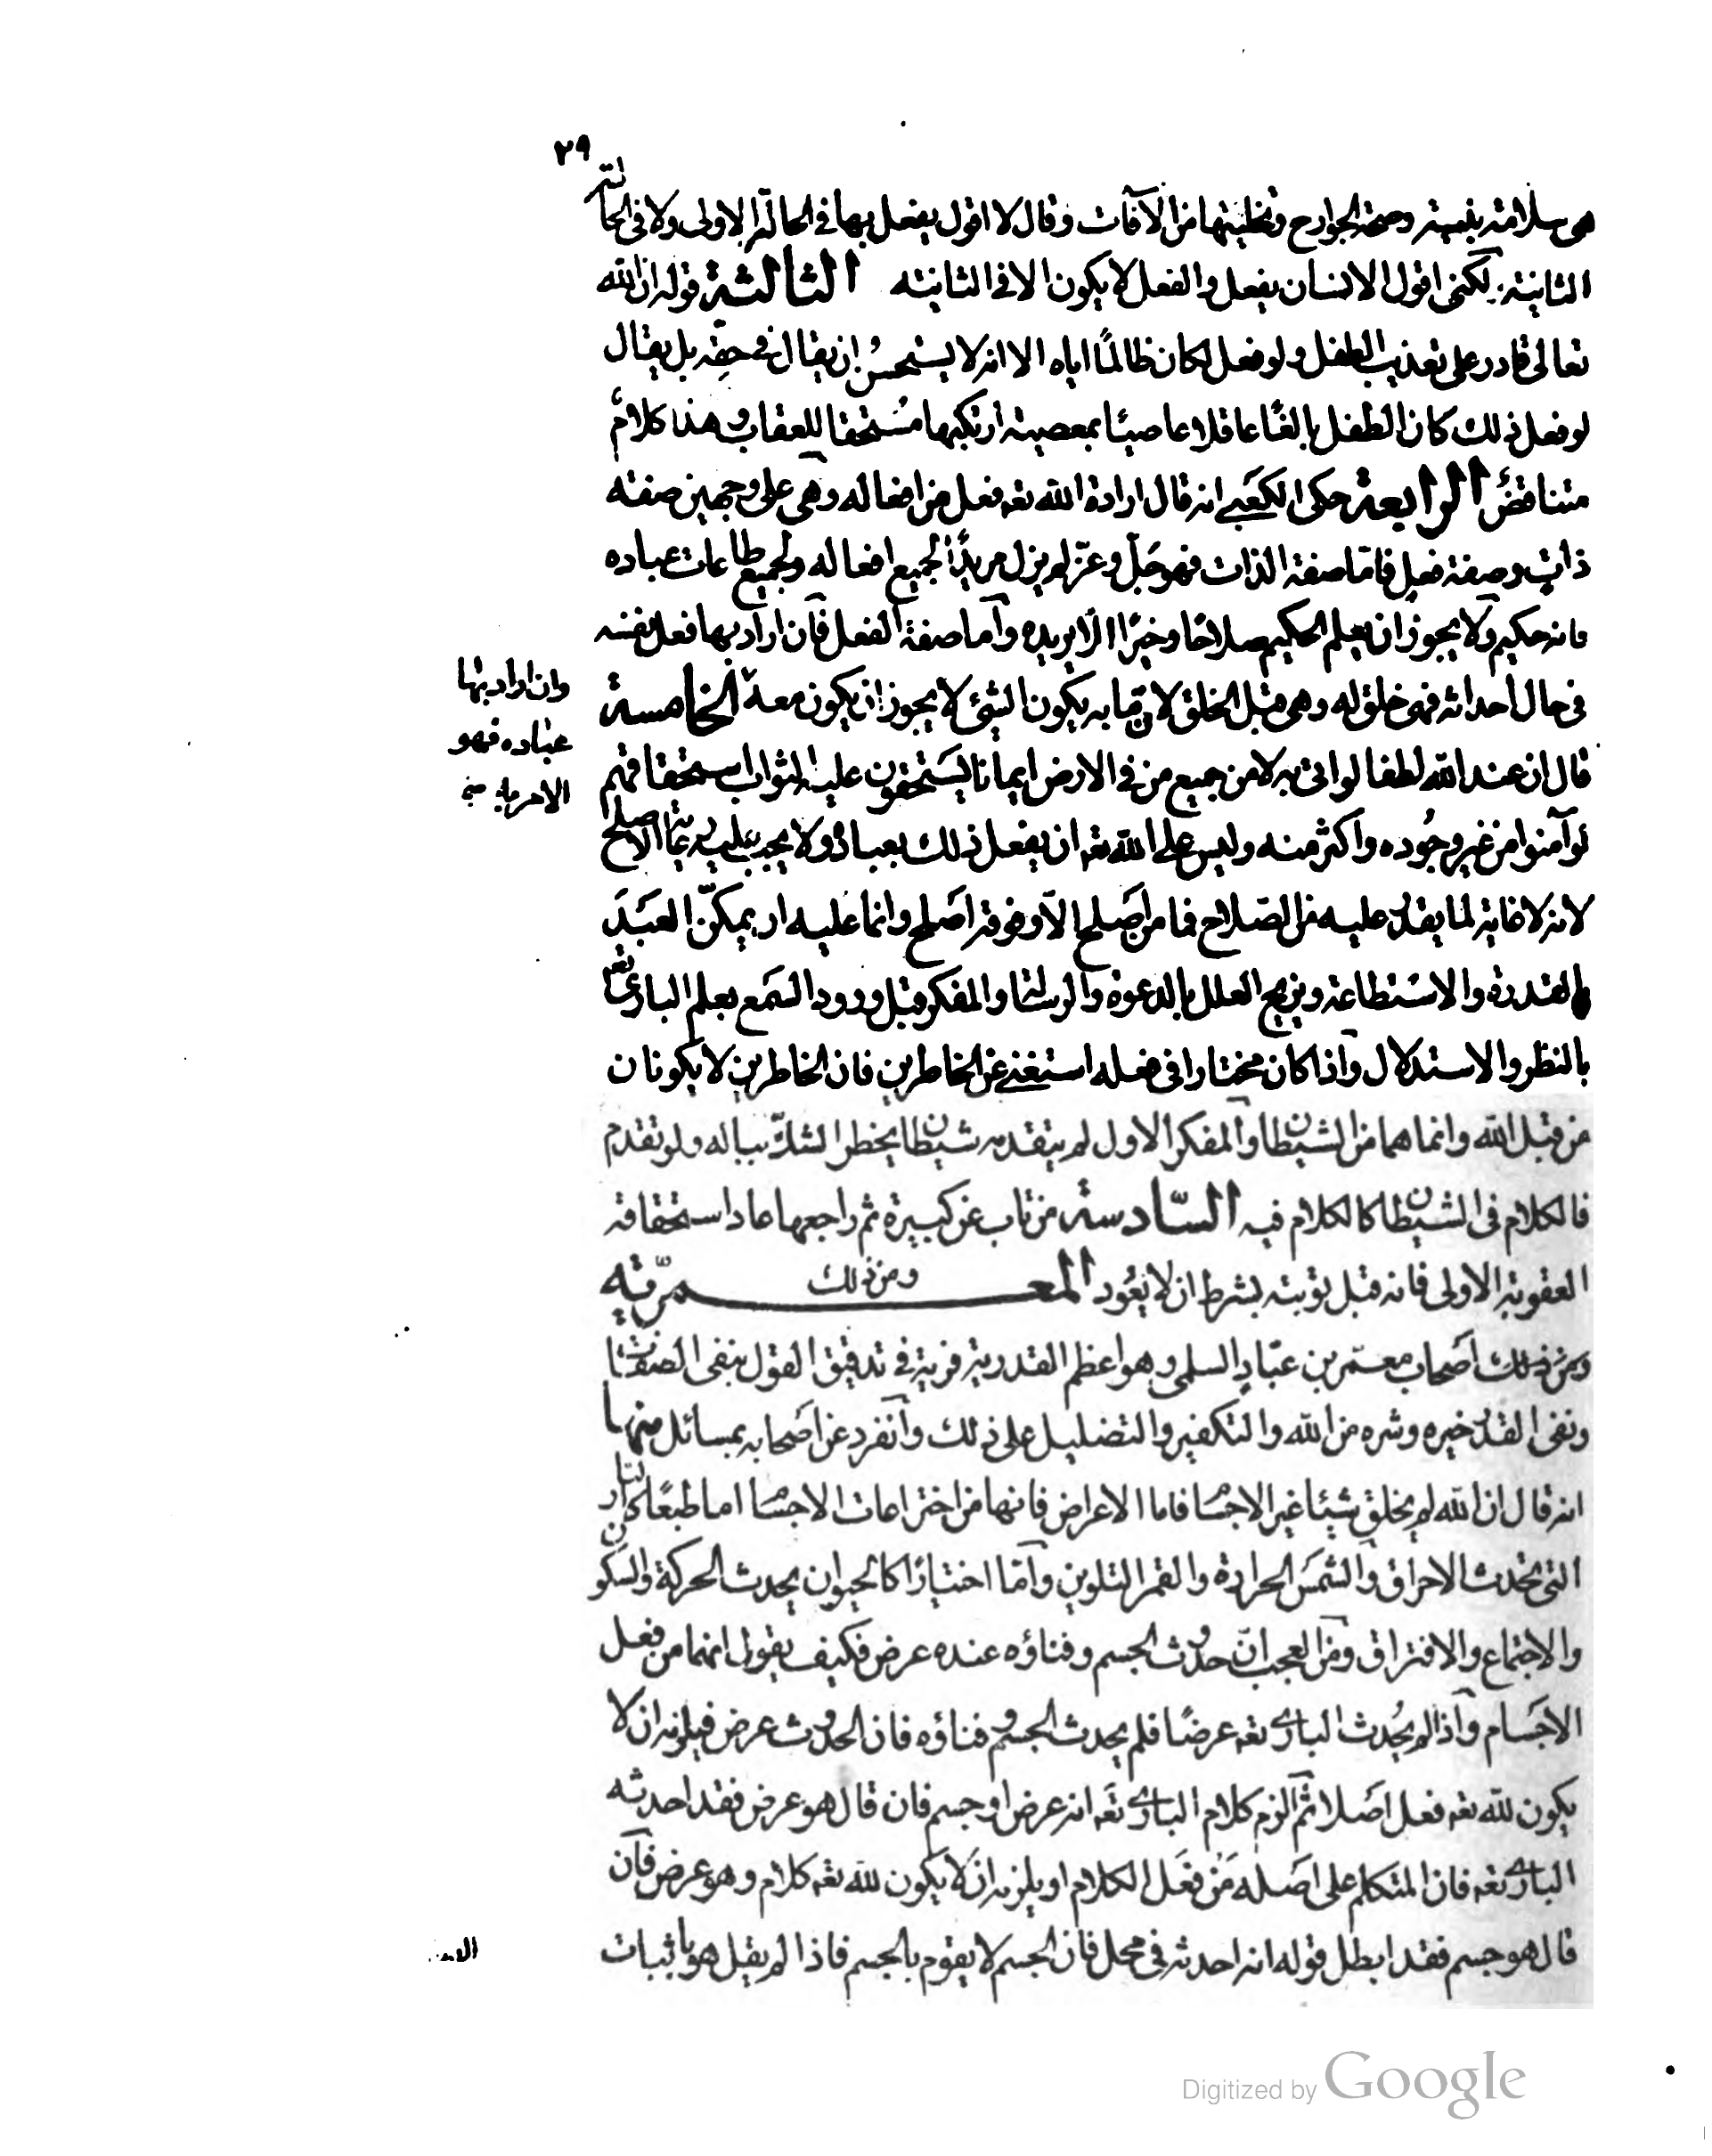 ٢٩
هى سلامة بنية وصحة الجوارح وتخليتها من الآفات وقال لا اقول يفعل بها فى الحالة الاولى ولا فى الحالة
الثانية لكنى اقول الانسان يفعل والفعل لا يكون الا فى الثانية الثالثة قوله ان الله
تعالى قادر على تعذيب الطفل ولو فعل لكان ظالمًا اياه الا انه لا يستحسن ان يقال فى حقه بل يقال
لو فعل ذلك كان الطفل بالغًا عاقلا عاصيًا بمعصية ارتكبها مستحقا للعقاب وهذا كلامٌ
متناقضٌ الرابعة حكى الكعبى انه قال ارادة الله تعه فعل من افعاله وهى على وجهين صفة
ذاتٍ وصفة فعلٍ فامّا صفة الذات فهو جلّ وعزّ لم يزل مريدًا لجميع افعاله ولجميع طاعات عباده
فانه حكيم ولا يجوز ان يعلم الحكيم صلاحًا وخيرًا الّا يريده وأما صفة الفعل فان اراد بها فعل نفسه
فى حال احداثه فهى خلق له وهى قبل الخلق لان ما به يكون الشئ لا يجوز ان يكون معه الخامسة
وان اراد بها
عباده فهو
الامر به صح
قال ان عند الله لطفا لو اتى به لامن جميع من فى الارض ايمانا يستحقون عليه الثواب استحقاقهم
لو آمنوا من غير وجُوده واكثر منه وليس على الله تعه ان يفعل ذلك بعباده ولا يجب عليه رعاية الاصلح
لانه لا غاية لما يقدر عليه من الصّلاح فما من اصلح الّا وفوقه اصلح وانما عليه ان يمكّن العبَدَ
بالقدرة والاستطاعة ويزيح العلل بالدعوة والرسالة والمفكر قبل ورود السمع يعلم البارى تعه
بالنظر والاستدلال واذا كان مختارا فى فعله استغنى عن الخاطرين فان الخاطرين لا يكونان
من قبل الله وانما هما من الشيطان والمفكر الاول لم يتقدمه شيطان يخطر الشكّ بباله ولو تقدم
فالكلام فى الشيطان كالكلام فيه السّادسة من تاب عن كبيرة ثم راجعها عاد استحقاقه
العقوبة الاولى فانه قبل توبته بشرط ان لا يعُود المعمريّة ومن ذلك
ومن ذلك اصحاب معمّر بن عبّادٍ السلمى وهو اعظم القدرية فرية فى تدقيق القول بنفى الصفات
ونفى القدر خيره وشره من الله والتكفير والتضليل على ذلك وانفرد عن اصحابه بمسائل منها
انه قال ان الله لم يخلق شيئا غير الاجسام فاما الاعراض فانها من اختراعات الاجسام اما طبعًا كالنار
التى تحدث الاحراق والشمس الحرارة والقمر التلوين وأمّا اختيارًا كالحيوان يحدث الحركة والسكون
والاجتماع والافتراق ومن العجب انّ حدوث الجسم وفناؤه عنده عرض فكيف يقول انهما من فعل
الاجسام وآذا لم يُحدث البارئ تعه عرضًا فلم يحدث الجسم وفناؤه فان الحدوث عرض فيلزمه ان لا
يكون لله تعه فعل اصلا ثمّ الزم كلام البارئ تعه انه عرض او جسم فان قال هو عرض فقد احدثه
البارئ تعه فان المتكلم على اصَله مَن فعَل الكلام او يلزمه ان لا يكون لله تعه كلام وهو عرض فان
قال هو جسم فقد ابطل قوله انه احدثه فى محل فان الجسم لا يقوم بالجسم فاذا لم يقل هو باثبات
Digitized by Google